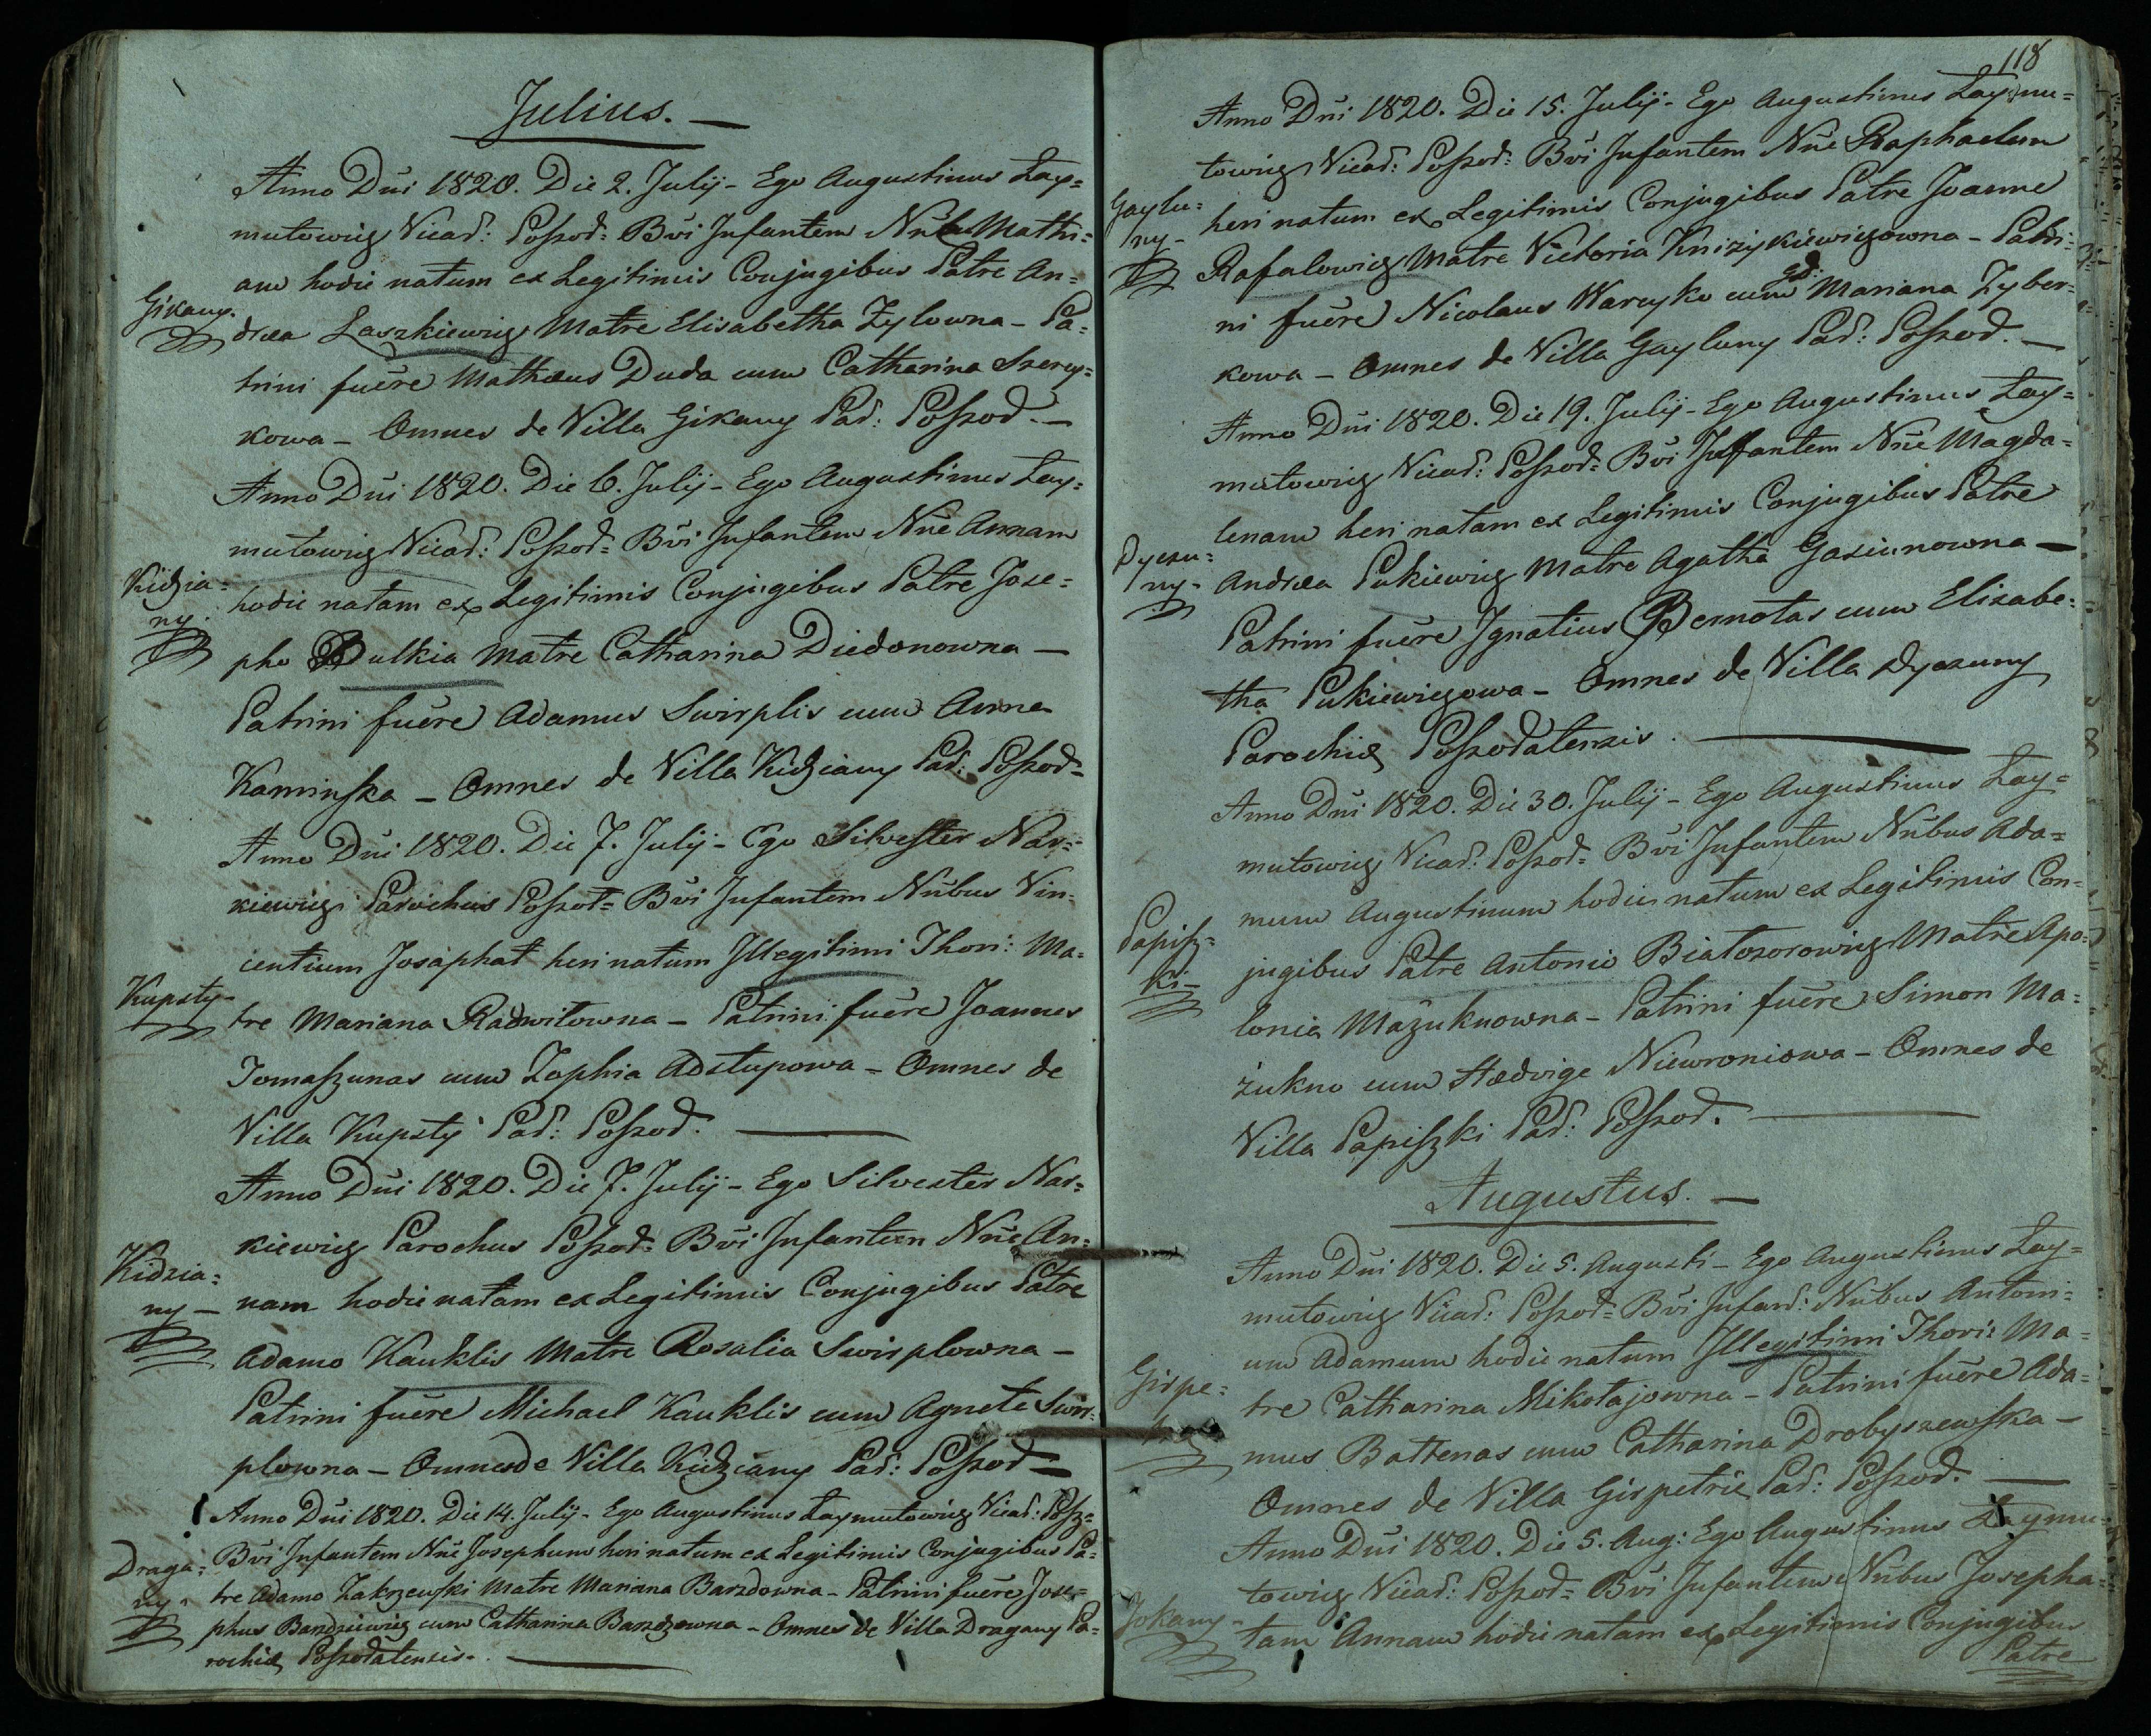 Julius. —
Anno Dñi 1820. Die 2. Julij - Ego Augustinus Łay=
mutowicz Vicar: Poszod= Bvi Infantem Nñe Mathi=
am hodie natum ex Legitimis Conjugibus Patre An=
Gikany.
drea Laszkiewicz Matre Elisabetha Zylowna - Pa=
trini fuēre Mathæus Duda cum Catharina Szercy=
kowa - Omnes de Villa Gikany Par: Poszod. —
Anno Dñi 1820. Die 6. Julij - Ego Augustinus Łay=
mutowicz Vicar: Poszod= Bvi Infantem Nñe Annam
Kidzia=
ny.
hodie natam ex Legitimis Conjugibus Patre Jose=
pho Bulkia Matre Catharina Diedonowna —
Patrini fuēre Adamus Swirplis cum Anna
Kaminska - Omnes de Villa Kidziany Par: Poszod=
Anno Dñi 1820. Die 7. Julij - Ego Silvester Nar=
kiewicz Parochus Poszod= Bvi Infantem Nñibus Vin=
centium Josaphat heri natum Illegitimi Thori: Ma=
Kupsty-
tre Mariana Radwiłowna - Patrini fuēre Joannes
Tomaszunas cum Zophia Adstupowa - Omnes de
Villa Kupsty Par: Poszod. —
Anno Dñi 1820. Die 7. Julij - Ego Silvester Nar=
kiewicz Parochus Poszod= Bvi Infantem Nñe An=
Kidzia=
ny —
nam hodie natam ex Legitimis Conjugibus Patre
Adamo Kauklis Matre Rosalia Swirplowna —
Patrini fuēre Michael Kauklis cum Agnete Swir=
plowna - Omnes de Villa Kidziany Par: Poszod —
Anno Dñi 1820. Die 14. Julij - Ego Augustinus Łaymutowicz Vicar: Posz=
Draga=
ny -
Bvi Infantem Nñe Josephum heri natum ex Legitimis Conjugibus Pa=
tre Adamo Zakrzewski Matre Mariana Barzdowna - Patrini fuēre Jose=
phus Bardziewicz cum Catharina Barzdzowna - Omnes de Villa Dragany Pa=
rochiæ Poszodatensis. —
118
Anno Dñi 1820. Die 15. Julij - Ego Augustinus Łaymu=
towicz Vicar: Poszod= Bvi Infantem Nñe Raphaelum
Gaylu=
ny -
heri natum ex Legitimis Conjugibus Patre Joanne
Rafalowicz Matre Victoria Knizykiewiczowna - Patri=
ni fuēre Nicolaus Warcyko cum Gd: Mariana Zyber=
kowa - Omnes de Villa Gayluny Par: Poszod. —
Anno Dñi 1820. Die 19. Julij - Ego Augustinus Łay=
mutowicz Vicar: Poszod= Bvi Infantem Nñe Magda=
lenam heri natam ex Legitimis Conjugibus Patre
Dyczu=
ny -
Andrea Pukiewicz Matre Agatha Gasiunowna —
Patrini fuēre Ignatius Bernotas cum Elisabe=
tha Pukiewiczowa - Omnes de Villa Dyczuny
Parochiæ Poszodatensis. —
Anno Dñi 1820. Die 30. Julij - Ego Augustinus Łay=
mutowicz Vicar: Poszod= Bvi Infantem Nñibus Ada=
mum Augustinum hodie natum ex Legitimis Con=
Papisz=
ki -
jugibus Patre Antonio Białozorowicz Matre Apo=
lonia Mażuknowna - Patrini fuēre Simon Ma=
żukno cum Hedvige Niewroniowa - Omnes de
Villa Papiszki Par: Poszod. —
Augustus. —
Anno Dñi 1820. Die 5. Augusti - Ego Augustinus Łay=
mutowicz Vicar: Poszod= Bvi Infant: Nñibus Antoni=
um Adamum hodie natum Illegitimi Thori: Ma=
Girpe=
tre Catharina Mikołajowna - Patrini fuēre Ada=
mus Battenas cum Catharina Drobyszewska —
Omnes de Villa Girpetrie Par: Poszod. —
Anno Dñi 1820. Die 5. Aug: Ego Augustinus Łaymu=
towicz Vicar: Poszod= Bvi Infantem Nñibus Josepha=
Jokany -
tam Annam hodie natam ex Legitimis Conjugibus
Patre